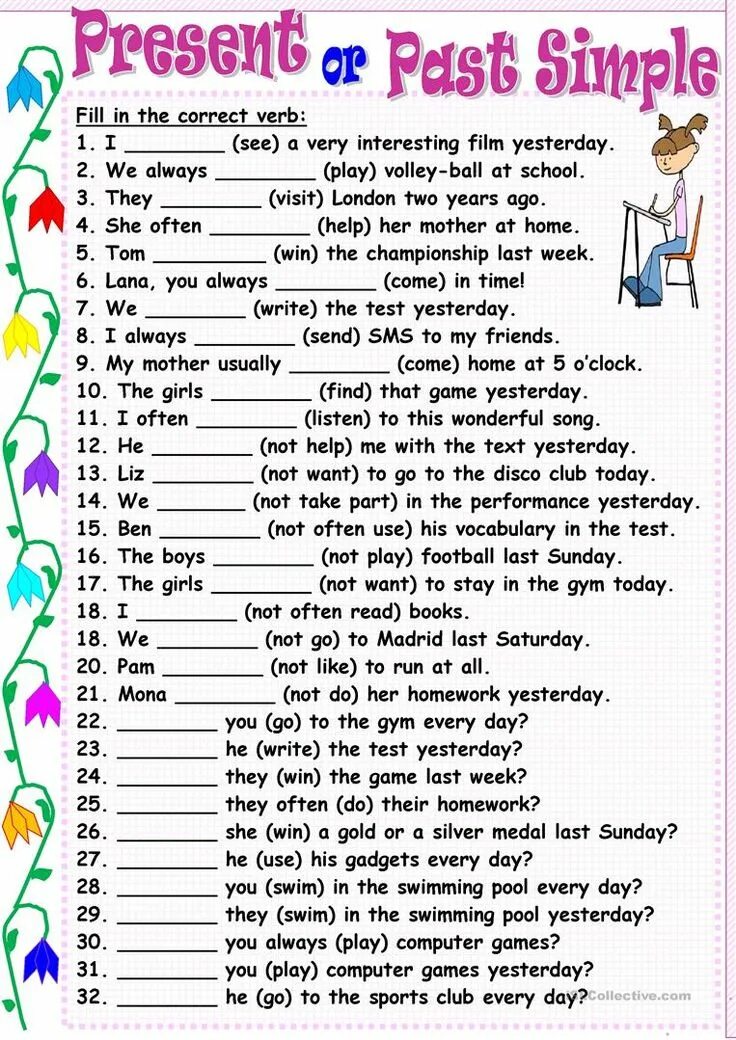 Present or Past Simple
Fill in the correct verb:
1. I _________ (see) a very interesting film yesterday.
2. We always _________ (play) volley-ball at school.
3. They _________ (visit) London two years ago.
4. She often _________ (help) her mother at home.
5. Tom __________ (win) the championship last week.
6. Lana, you always _________ (come) in time!
7. We _________ (write) the test yesterday.
8. I always _________ (send) SMS to my friends.
9. My mother usually _________ (come) home at 5 o’clock.
10. The girls _________ (find) that game yesterday.
11. I often _________ (listen) to this wonderful song.
12. He _________ (not help) me with the text yesterday.
13. Liz _________ (not want) to go to the disco club today.
14. We _________ (not take part) in the performance yesterday.
15. Ben _________ (not often use) his vocabulary in the test.
16. The boys _________ (not play) football last Sunday.
17. The girls _________ (not want) to stay in the gym today.
18. I _________ (not often read) books.
18. We _________ (not go) to Madrid last Saturday.
20. Pam _________ (not like) to run at all.
21. Mona _________ (not do) her homework yesterday.
22. _________ you (go) to the gym every day?
23. _________ he (write) the test yesterday?
24. _________ they (win) the game last week?
25. _________ they often (do) their homework?
26. _________ she (win) a gold or a silver medal last Sunday?
27. _________ he (use) his gadgets every day?
28. _________ you (swim) in the swimming pool every day?
29. _________ they (swim) in the swimming pool yesterday?
30. _________ you always (play) computer games?
31. _________ you (play) computer games yesterday?
32. _________ he (go) to the sports club every day?
iSLCollective.com